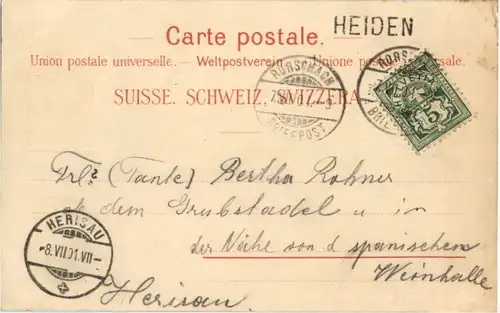 HEIDEN
Carte postale.
Union postale universelle. – Weltpostverein – Unione postale
SUISSE. SCHWEIZ. SVIZZERA.
RORSCHACH
BRIEFPOST
RORSCH
HELVETIA
5
Frl. (Tante) Bertha Rohner
dem Grubstadel u in
der Nähe von d spanischen
Weinhalle
Herisau
HERISAU
-8.VII.01.VII-